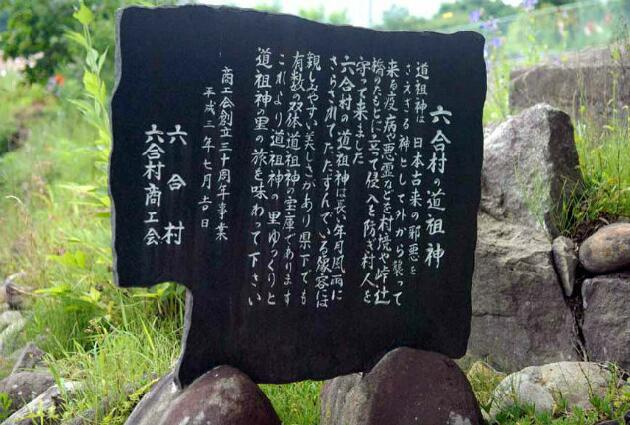 六合村の道祖神
道祖神は日本古来の邪悪を
さえぎる神として外から襲って
来る疫病や悪霊などを村境や峠辻
橋のたもとに立て侵入を防ぎ村人を
守って来ました
六合村の道祖神は長い年月風雨に
さらされてたたずんでいる像容は
親しみやすい美しさがあり県下でも
有数の双体道祖神の宝庫であります
これより道祖神の里ゆっくりと
道祖神の里の旅を味わって下さい
商工会創立三十周年事業
平成三年七月 日
六合村
六合村商工会